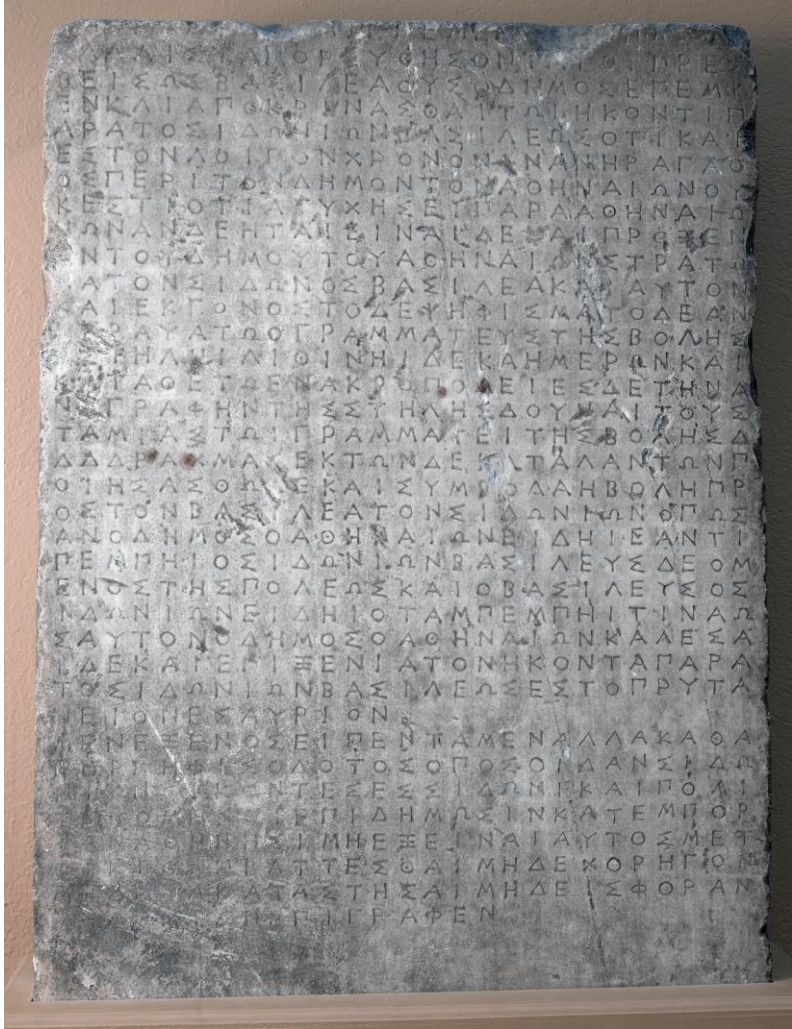 ΛΙΣΤΑΠΟΡΕΥΘΗΣΟΝΤΑΙΟΙΠΡΕΣ
ΒΕΙΣΩΣΒΑΣΙΛΕΑΟΥΣΟΔΗΜΟΣΕΠΕΜΨ
ΕΝΚΑΙΑΠΟΚΡΙΝΑΣΘΑΙΤΩΙΗΚΟΝΤΙΠ
ΑΡΑΤΟΣΙΔΩΝΙΩΝΒΑΣΙΛΕΩΣΟΤΙΚΑΙ
ΕΣΤΟΝΛΟΙΠΟΝΧΡΟΝΟΝΩΝΑΝΗΡΑΓΑΘ
ΟΣΠΕΡΙΤΟΝΔΗΜΟΝΤΟΝΑΘΗΝΑΙΩΝΟΥ
ΚΕΣΤΙΟΤΙΑΤΥΧΗΣΕΙΠΑΡΑΑΘΗΝΑΙΩ
ΝΩΝΑΝΔΕΗΤΑΙΕΙΝΑΙΔΕΚΑΙΠΡΟΞΕΝ
ΟΝΤΟΔΗΜΟΥΤΟΥΑΘΗΝΑΙΩΝΣΤΡΑΤΩ
ΝΑΤΟΝΣΙΔΩΝΟΣΒΑΣΙΛΕΑΚΑΙΑΥΤΟΝ
ΚΑΙΕΚΓΟΝΟΣΤΟΔΕΨΗΦΙΣΜΑΤΟΔΕΑΝ
ΑΓΡΑΨΑΤΩΟΓΡΑΜΜΑΤΕΥΣΤΗΣΒΟΛΗΣ
ΕΣΤΗΛΗΙΛΙΘΙΝΗΙΔΕΚΑΗΜΕΡΩΝΚΑΙ
ΚΑΤΑΘΕΤΩΕΝΑΚΡΟΠΟΛΕΙΕΣΔΕΤΗΝΑ
ΝΑΓΡΑΦΗΝΤΗΣΣΤΗΛΗΣΔΟΥΝΑΙΤΟΥΣ
ΤΑΜΙΑΣΤΩΙΓΡΑΜΜΑΤΕΙΤΗΣΒΟΛΗΣΔ
ΔΔΔΡΑΧΜΑΣΕΚΤΩΝΔΕΚΑΤΑΛΑΝΤΩΝΠ
ΟΙΗΣΑΣΘΩΔΕΚΑΙΣΥΜΒΟΛΑΗΒΟΛΗΠΡ
ΟΣΤΟΝΒΑΣΙΛΕΑΤΟΝΣΙΔΩΝΙΩΝΟΠΩΣ
ΑΝΟΔΗΜΟΣΟΑΘΗΝΑΙΩΝΕΙΔΗΙΕΑΝΤΙ
ΠΕΜΠΗΙΟΣΙΔΩΝΙΩΝΒΑΣΙΛΕΥΣΔΕΟΜ
ΕΝΟΣΤΗΣΠΟΛΕΩΣΚΑΙΟΒΑΣΙΛΕΥΣΟΣ
ΙΔΩΝΙΩΝΕΙΔΗΙΟΤΑΜΠΕΜΠΗΙΤΙΝΑΩ
ΣΑΥΤΟΝΟΔΗΜΟΣΟΑΘΗΝΑΙΩΝΚΑΛΕΣΑ
ΙΔΕΚΑΙΕΠΙΞΕΝΙΑΤΟΝΗΚΟΝΤΑΠΑΡΑ
ΤΟΣΙΔΩΝΙΩΝΒΑΣΙΛΕΩΣΕΣΤΟΠΡΥΤΑ
ΝΕΙΟΝΕΣΑΥΡΙΟΝ
ΜΕΝΕΞΕΝΟΣΕΙΠΕΝΤΑΜΕΝΑΛΛΑΚΑΘΑ
ΠΕΡΚΗΦΙΣΟΔΟΤΟΣΟΠΟΣΟΙΔΑΝΣΙΔΩ
ΝΤΕΣΕΣΣΙΔΩΝΙΚΑΙΠΟΛΙ
ΕΠΙΔΗΜΩΣΙΝΚΑΤΕΜΠΟΡ
ΜΗΕΞΕΙΝΑΙΑΥΤΟΣΜΕΤ
ΑΤΤΕΣΘΑΙΜΗΔΕΧΟΡΗΓΟΝ
ΚΑΤΑΣΤΗΣΑΙΜΗΔΕΙΣΦΟΡΑΝ
ΕΠΙΓΡΑΦΕΝ